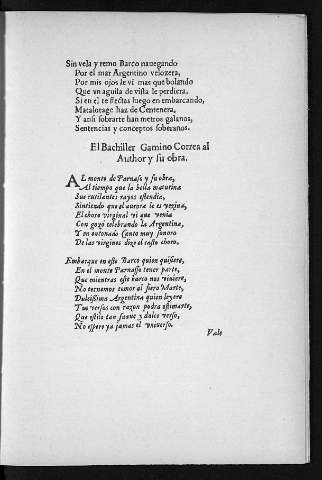 Sin vela y remo Barco nauegando
Por el mar Argentino velozera,
Por mis ojos le vi mas que bolando
Que vn aguila de vista le perdiera,
Si en el te fletas luego en embarcando,
Matalotage haz de Centenera,
Y ansi sobrarte han metros galanos,
Sentencias y conceptos soberanos.
El Bachiller Gamino Correa al
Author y su obra.
AL monte de Parnaso y su obra,
Al tiempo que la bella matutina
Sus rutilantes rayos estendia,
Sintiendo que el aurora le es vezina,
El choro virginal vi que venia
Con gozo celebrando la Argentina,
Y en entonado canto muy sonoro
De las virgines dize el casto choro.
Embarque en este Barco quien quisiere,
En el monte Parnasso tener parte,
Que mientras este barco nos viniere,
No tornemos temor al fiero Marte,
Dulcissima Argentina quien leyere
Tus versos con razon podra estimarte,
Que estilo tan suaue y dulce verso,
No espero ya jamas el vniuerso.
Vale